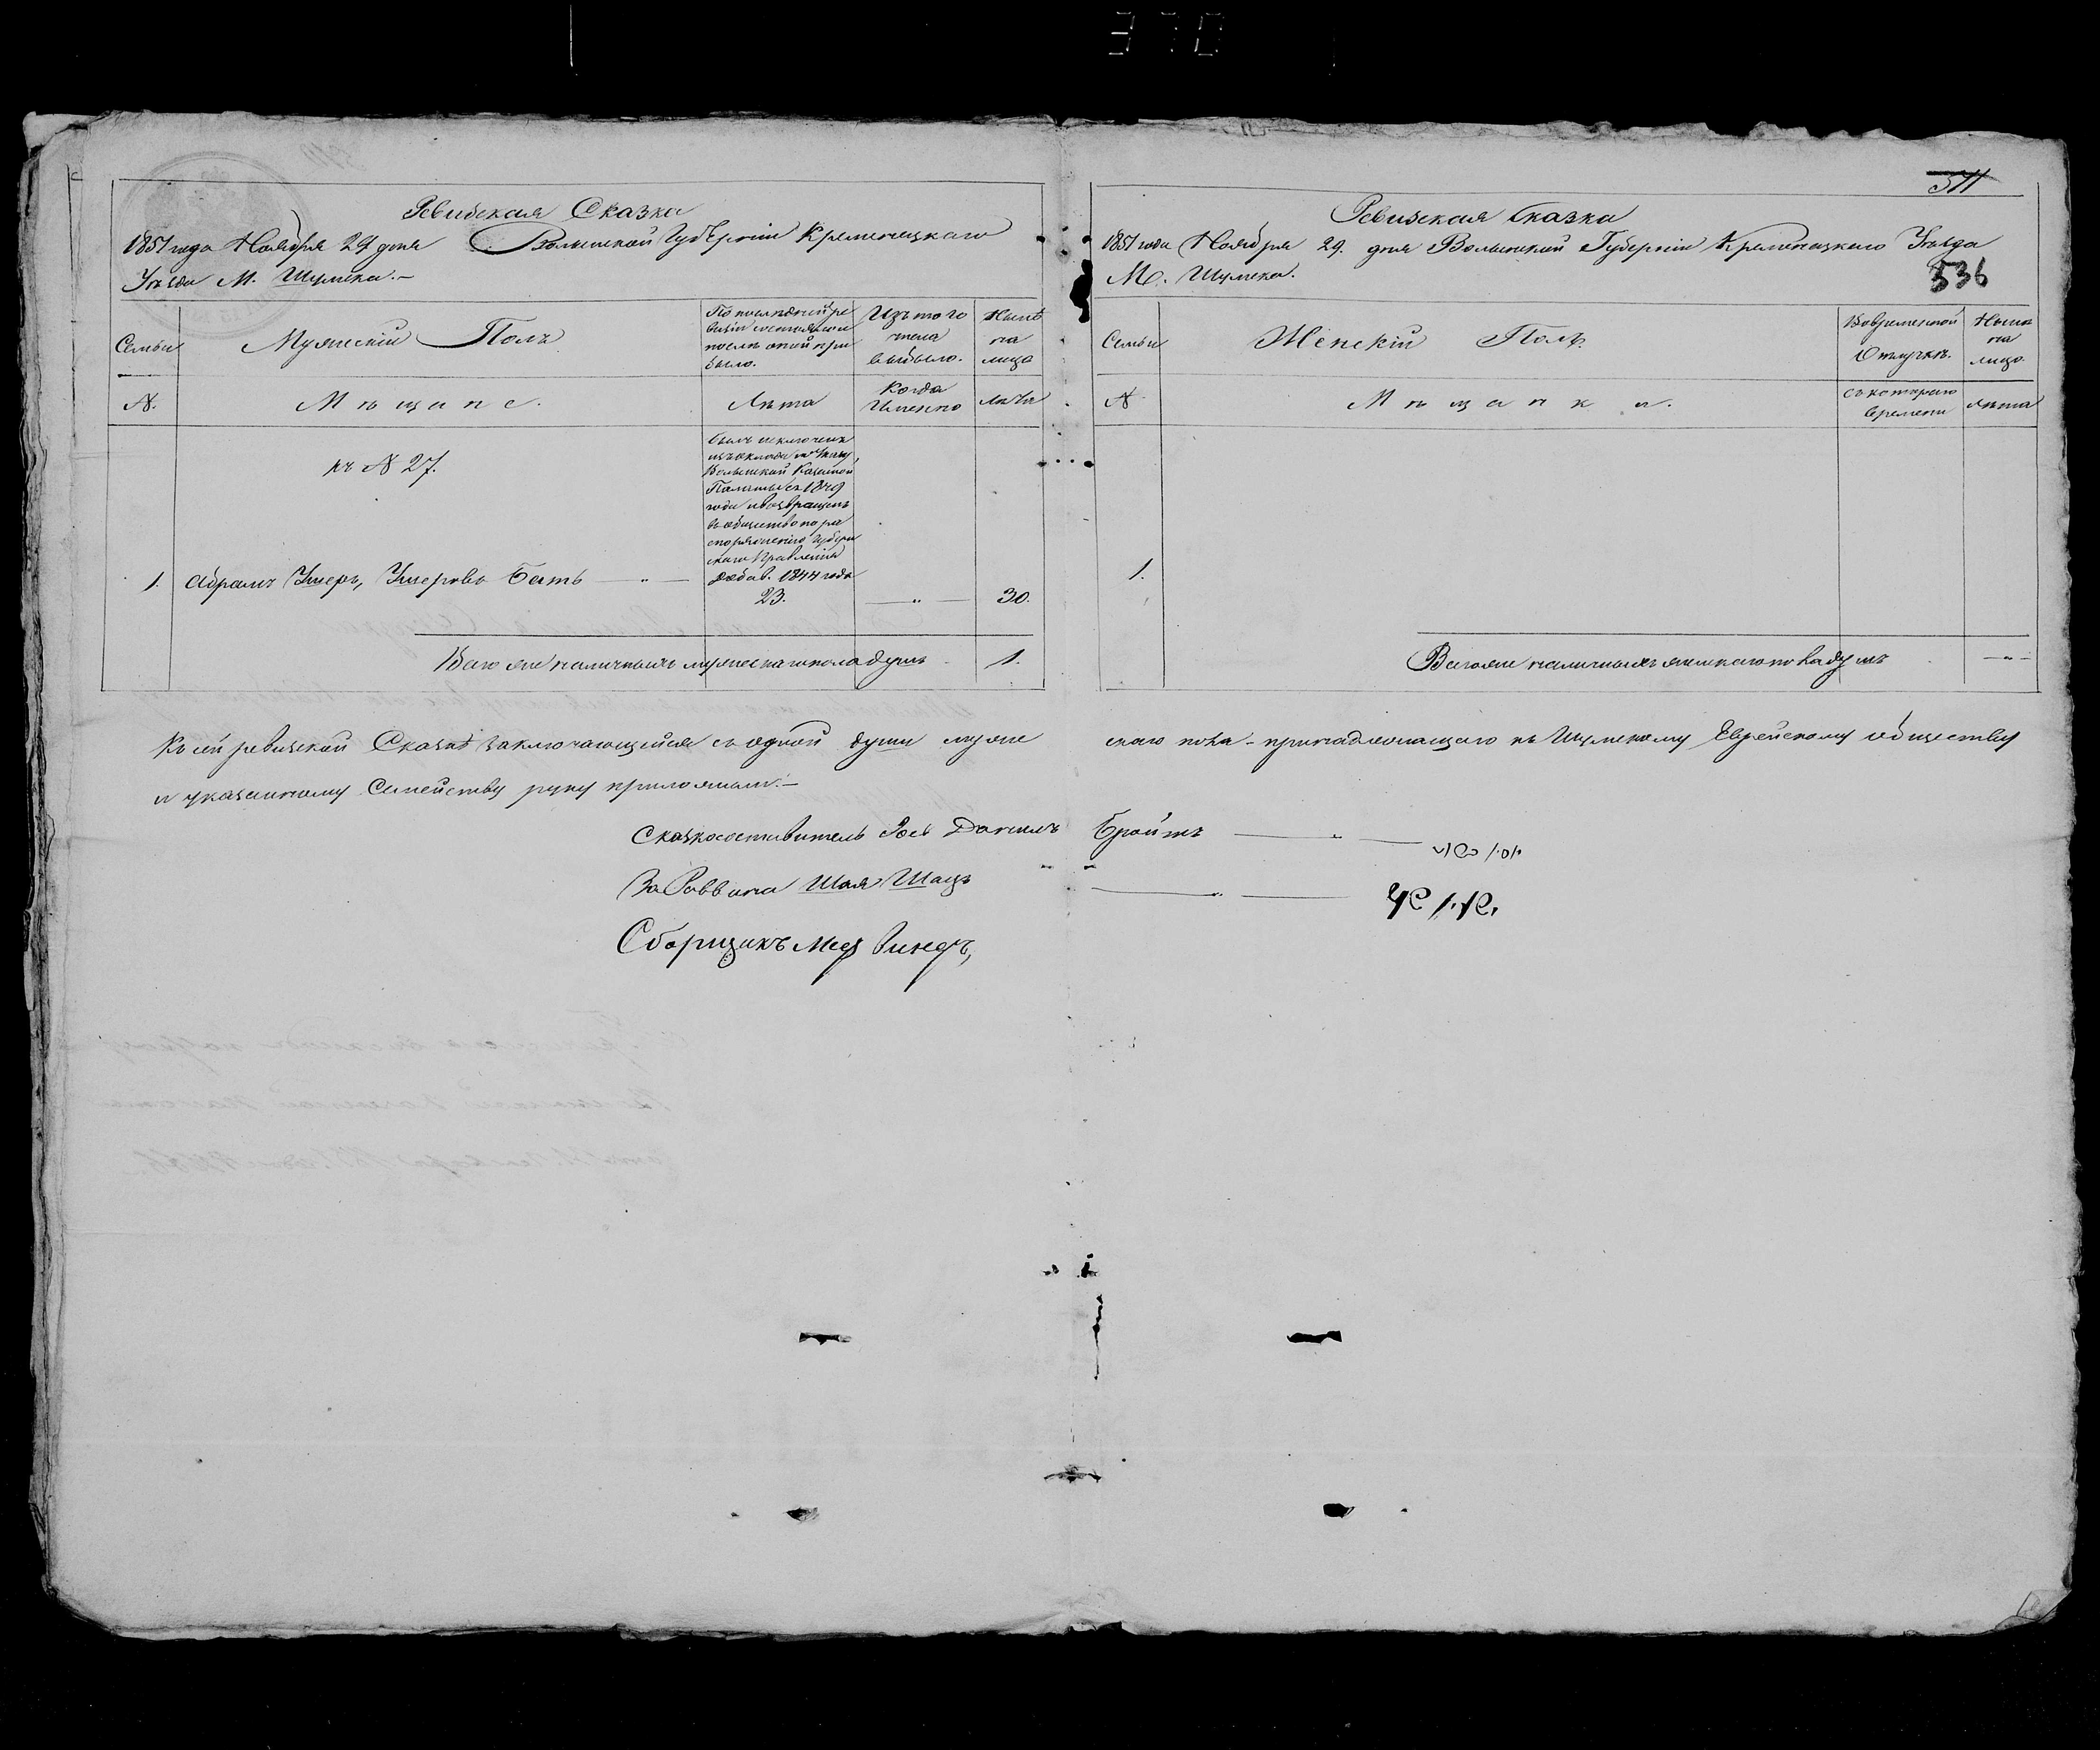 370
Ревизская Сказка
1851 года Ноября 29 дня Волынской Губерніи Кременецкаго
Уѣзда М. Шумска.-
Семьи
Мужескій Полъ
По послѣдней ре
визіи состояло и
послѣ оной при
было.
Изъ того
числа
выбыло.
Нынѣ
на
лицо
№.
Мѣщане.
Лѣта
Когда
Именно
Лѣта
къ № 27.
былъ исключенъ
изъ оклада по указу
Волынской Казенной
Палаты съ 1849
года и возвращенъ
въ общество по ра
споряженію Губерн
скаго Правленія
добав. 1844 года
1. Абрамъ Умеръ, Умеровъ Батъ — " —
23. — " — 30.
Всего же наличныхъ мужескаго пола душъ 1.
511
Ревизская Сказка
1851 года Ноября 29. дня Волынской Губерніи Кременецкаго Уѣзда
М. Шумска.
536
Семьи
Женскій Полъ.
Во временной
Отлучкѣ.
Нынѣ
на
лицо.
№
Мѣщанки.
Съ котораго
времени
Лѣта
1.
Всего же наличныхъ женскаго пола душъ — " —
Къ сей ревизской Сказкѣ заключающейся съ одной души муже скаго пола - принадлежащаго къ Шумскому Еврейскому обществу
и указанному Семейству руку приложили.-
Сказкосоставитель Іось Данилъ Бройтъ — " —
За Раввина Шая Шацъ — " —
Сборщикъ